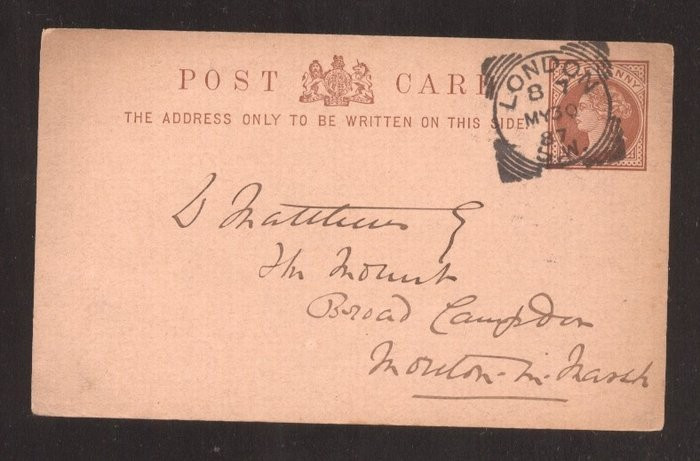 POST CARD
THE ADDRESS ONLY TO BE WRITTEN ON THIS SIDE.
LONDON
8
MY 30
87
S.W.
D Matthews
The Mount
Broad Campden
Moreton-in-Marsh